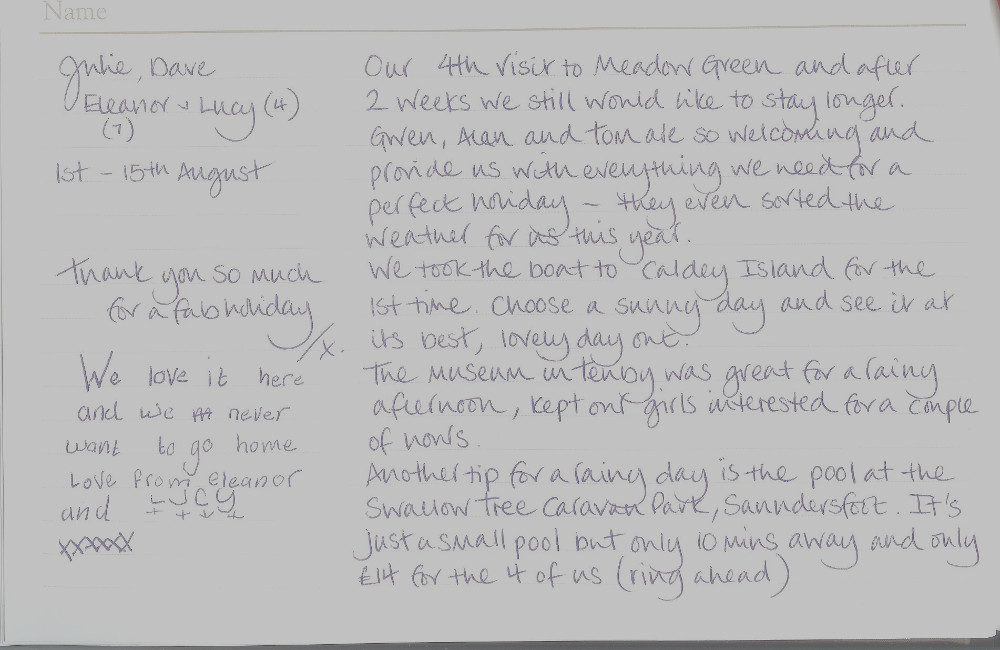 Name
Julie, Dave
Eleanor + Lucy (4)
(7)
1st - 15th August
Thank you so much
for a fab holiday
/x.
We love it here
and we never
want to go home
Love from eleanor
and LUCY
xxxxxx
Our 4th visit to Meadow Green and after
2 weeks we still would like to stay longer.
Gwen, Alan and Tom are so welcoming and
provide us with everything we need for a
perfect holiday - they even sorted the
weather for us this year.
We took the boat to Caldey Island for the
1st time. Choose a sunny day and see it at
its best, lovely day out.
The Museum in Tenby was great for a rainy
afternoon, kept our girls interested for a couple
of hours.
Another tip for a rainy day is the pool at the
Swallow Tree Caravan Park, Saundersfoot. It's
just a small pool but only 10 mins away and only
£14 for the 4 of us (ring ahead)